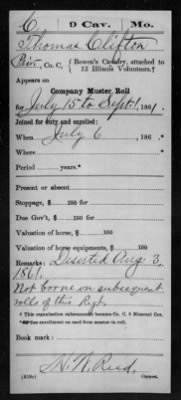 C | 9 Cav. | Mo.
Thomas Clifton
Priv., Co. C, { Bowen's Cavalry, attached to
13 Illinois Volunteers.†
Appears on
Company Muster Roll
for July 15 to Sept. 1, 1861.
Joined for duty and enrolled:
When July 6, 186 .*
Where
Period years.*
Present or absent
Stoppage, $ 100 for
Due Gov't, $ 100 for
Valuation of horse, $ 100
Valuation of horse equipments, $ 100
Remarks: Deserted Aug 3,
1861.
Not borne on subsequent
rolls of this Regt.
† This organization subsequently became Co. C, 9 Missouri Cav.
*See enrollment on card from muster-in roll.
Book mark:
H. W. Reed,
Copyist.